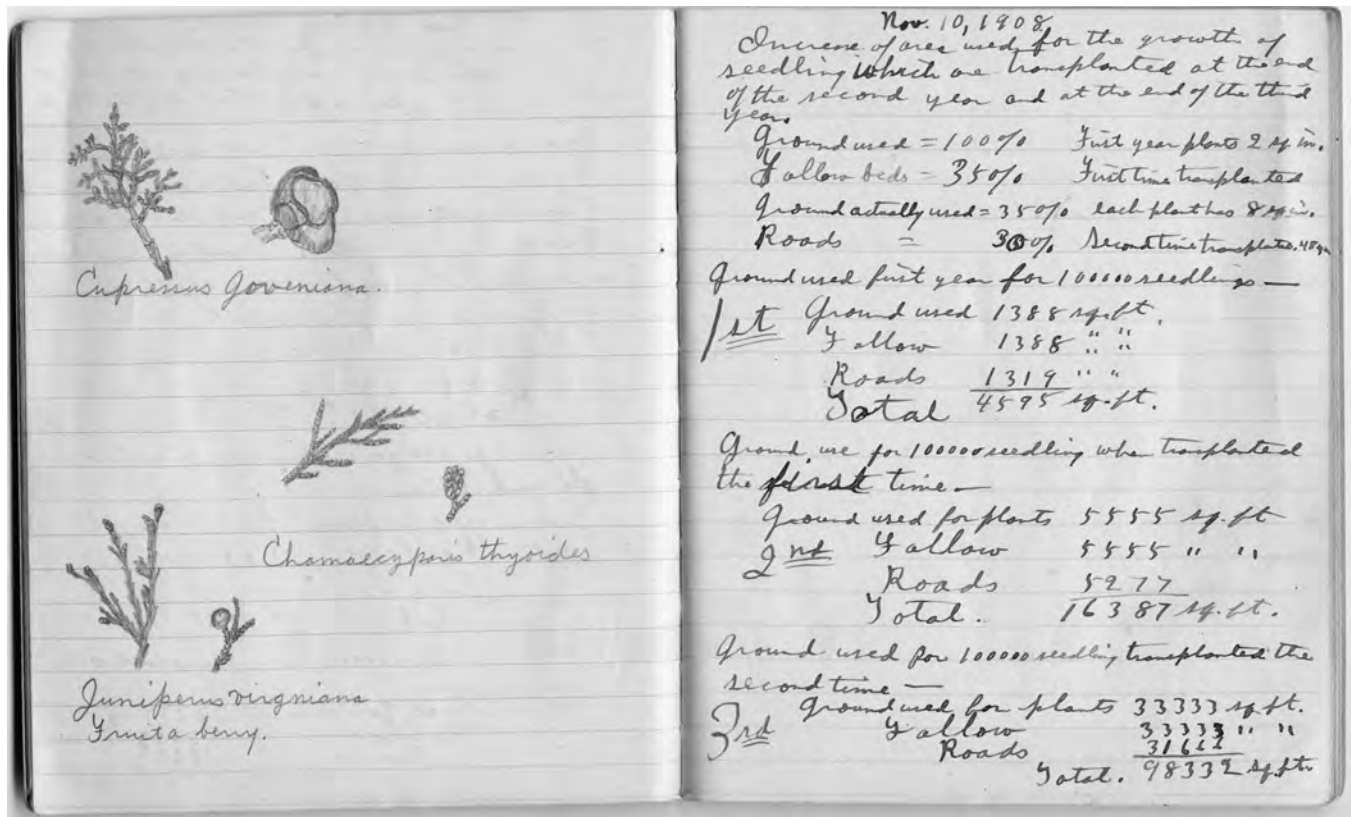 Cupressus Goveniana.
Chamaecyparis thyoides
Juniperus virgniana
Fruit a berry.
Nov. 10, 1908
Increase of area used for the growth of
seedling which are transplanted at the end
of the second year and at the end of the third
year.
Ground used = 100% First year plants 2 sq in.
Fallow beds = 35% First time transplanted
Ground actually used = 35% each plant has 8 sq in.
Roads = 30% Second time transplated. 48 sq in
Ground used first year for 100000 seedlings —
1st Ground used 1388 sq. ft.
Fallow 1388 " "
Roads 1319 " "
Total 4595 sq. ft.
Ground use for 100000 seedling when transplanted
the first time —
Ground used for plants 5555 sq. ft
2nd Fallow 5555 " "
Roads 5277
Total. 16387 sq. ft.
Ground used for 100000 seedling transplanted the
second time —
Ground used for plants 33333 sq. ft.
3rd Fallow 33333 " "
Roads 31666
Total. 98332 sq. ft.